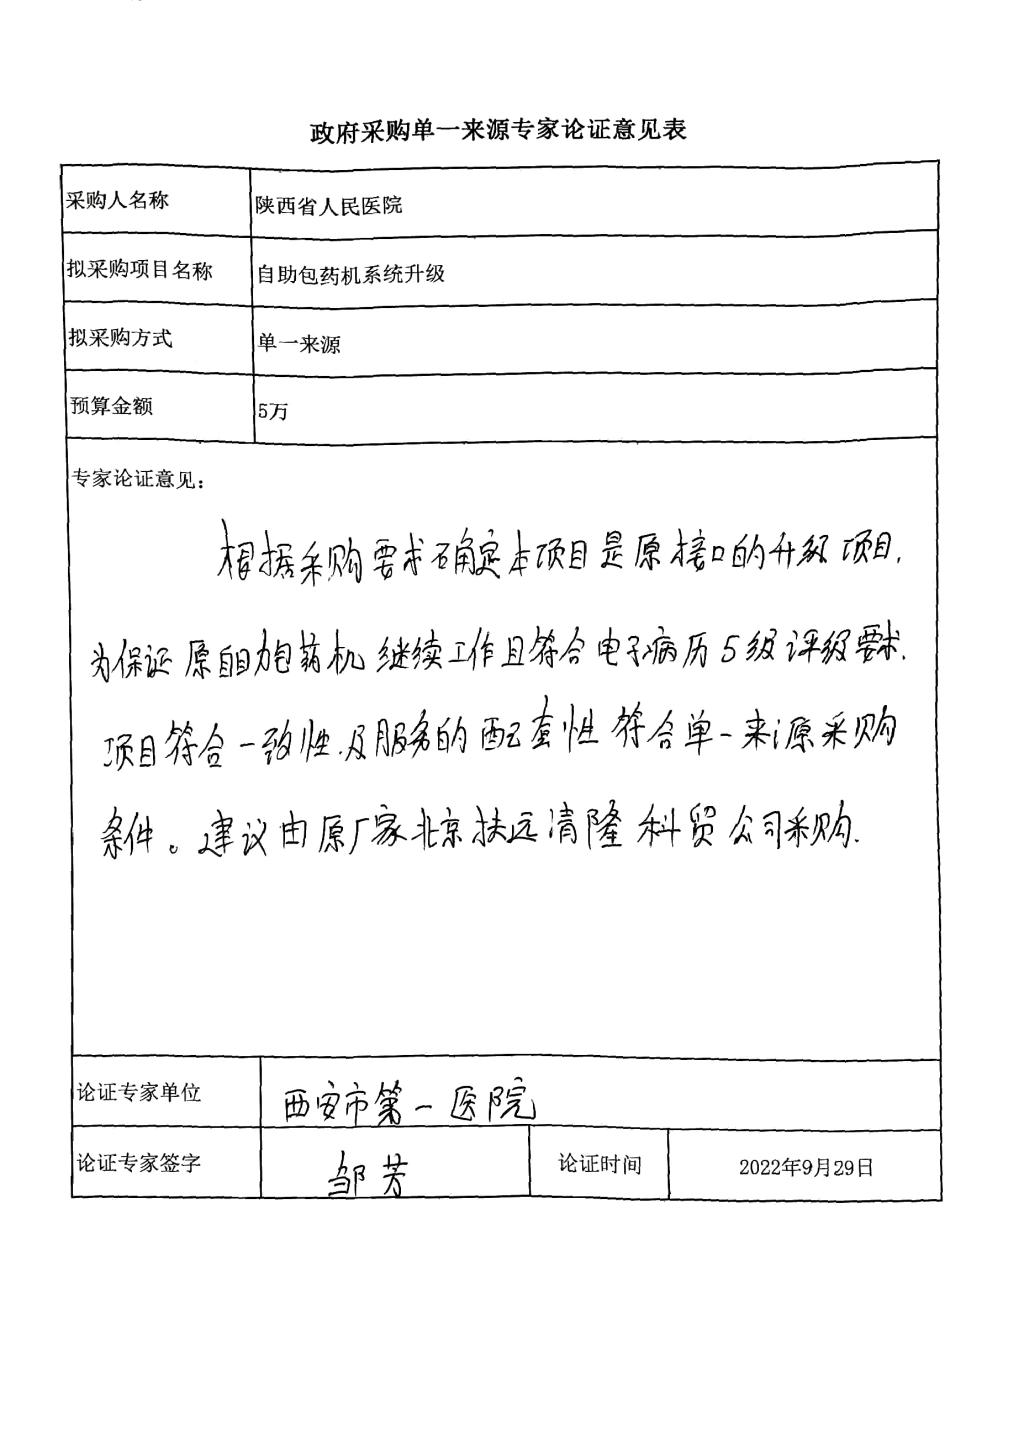 政府采购单一来源专家论证意见表
采购人名称 陕西省人民医院
拟采购项目名称 自助包药机系统升级
拟采购方式 单一来源
预算金额 5万
专家论证意见：
根据采购要求确定本项目是原接口的升级项目,
为保证原自助包药机继续工作且符合电子病历5级评级要求.
项目符合一致性及服务的配套性符合单一来源采购
条件。建议由原厂家北京扶远清隆科贸公司采购.
论证专家单位 西安市第一医院
论证专家签字 邹芳 论证时间 2022年9月29日